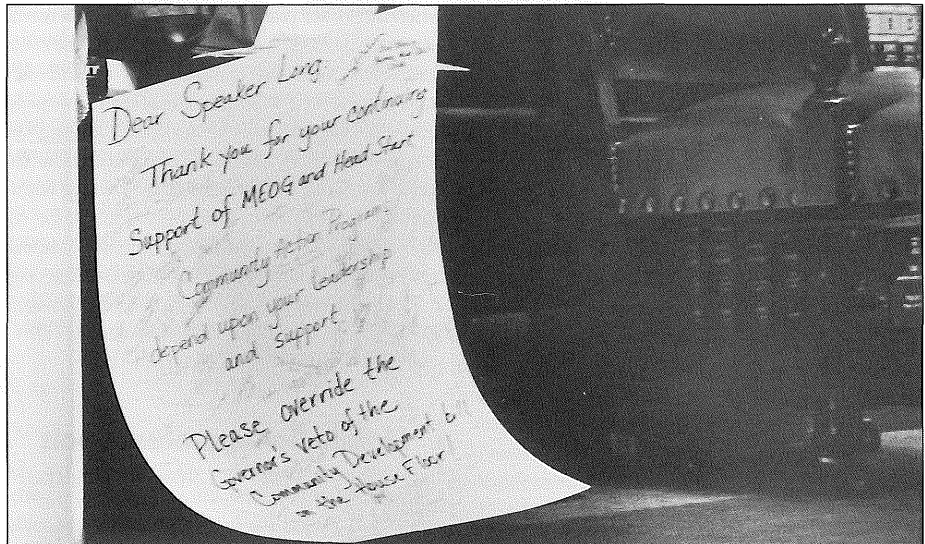 Dear Speaker Long
Thank you for your continuing
Support of MEOG and Head Start
Community Action Programs
depend upon your leadership
and support
Please override the
Governor's veto of the
Community Development bill
on the House Floor!